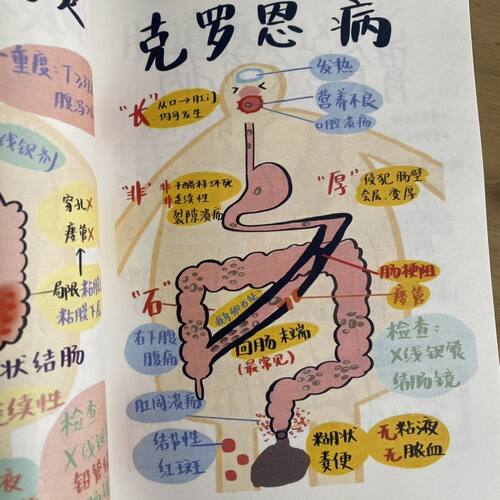 克罗恩病
发热
营养不良
口腔溃疡
"长"
从口→肛门
均可发生
"非"
非干酪样坏死
非连续性
裂隙溃疡
"厚"
侵犯肠壁
全层、变厚
肠梗阻
瘘管
"石"
鹅卵石样
回肠末端
(最常见)
右下腹
腹痛
检查:
X线钡餐
结肠镜
肛周溃疡
结节性
红斑
糊状
粪便
无粘液
无脓血
重度:T>3
腹泻>
线钡剂
穿孔X
瘘管X
局限粘膜
粘膜下
状结肠
连续性
检查
X线
钡